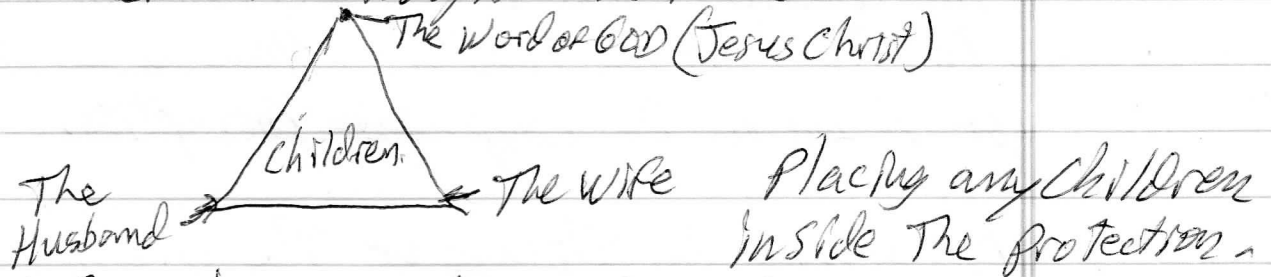 The Word OF GOD (Jesus Christ)
Children.
The Husband
The Wife
Placing any Children
inside The protection.